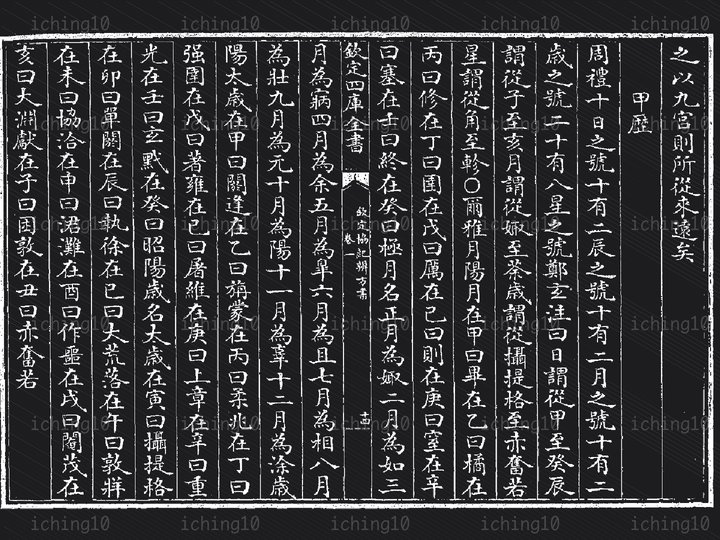 之以九宮則所從來遠矣
甲歷
周禮十日之號十有二辰之號十有二月之號十有二
歲之號二十有八星之號鄭玄注曰日謂從甲至癸辰
謂從子至亥月謂從娵至荼歲謂從攝提格至赤奮若
星謂從角至軫○爾雅月陽月在甲曰畢在乙曰橘在
丙曰修在丁曰圉在戊曰厲在已曰則在庚曰窒在辛
曰塞在壬曰終在癸曰極月名正月為娵二月為如三
欽定四庫全書
欽定協紀辨方書
卷一
月為寎四月為余五月為臯六月為且七月為相八月
為壯九月為元十月為陽十一月為辜十二月為涂歲
陽太歲在甲曰閼逢在乙曰旃蒙在丙曰柔兆在丁曰
强圉在戊曰著雍在已曰屠維在庚曰上章在辛曰重
光在壬曰玄黓在癸曰昭陽歲名太歲在寅曰攝提格
在卯曰單閼在辰曰執徐在巳曰大荒落在午曰敦牂
在未曰協洽在申曰涒灘在酉曰作噩在戌曰閹茂在
亥曰大淵獻在子曰困敦在丑曰赤奮若